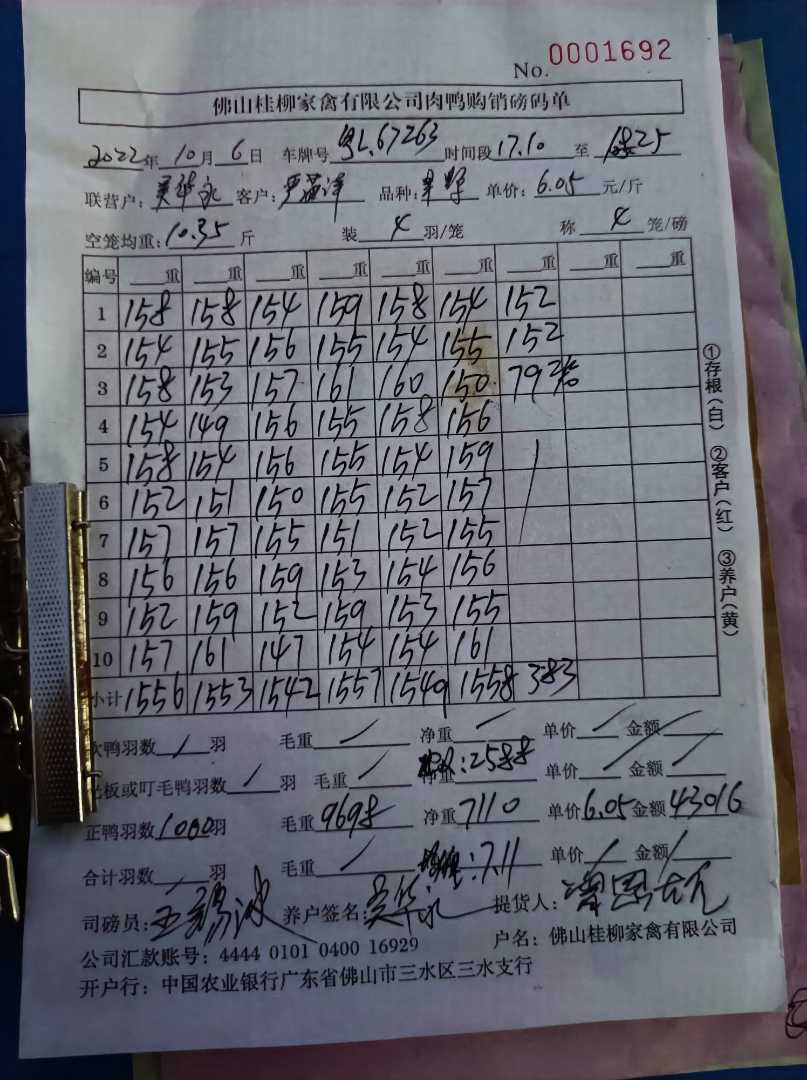 No. 0001692
佛山桂柳家禽有限公司肉鸭购销磅码单
2022年10月6日 车牌号 粤L.67263 时间段17.10 至 25
联营户: 吴华永 客户: 严 品种: 单价: 6.05 元/斤
空笼均重: 10.35 斤 装 4 羽/笼 称 4 笼/磅
编号 重 重 重 重 重 重 重 重 重
1 158 158 154 159 158 154 152
2 154 155 156 155 154 155 152
3 158 153 157 161 160 150 79 2笼
4 154 149 156 155 158 156
5 158 154 156 155 154 159
6 152 151 150 155 152 157
7 157 157 155 151 152 155
8 156 156 159 153 154 156
9 152 159 152 159 153 155
10 157 161 147 154 154 161
小计 1556 1553 1542 1557 1549 1558 383
①存根(白) ②客户(红) ③养户(黄)
次鸭羽数 / 羽 毛重 / 净重 / 单价 / 金额 /
:2588
光板或叮毛鸭羽数 / 羽 毛重 / 净重 单价 / 金额 /
正鸭羽数 1000羽 毛重 9698 净重 7110 单价6.05 金额 43016
合计羽数 / 羽 毛重 / :7.11 单价 / 金额 /
司磅员: 王锡冰 养户签名: 吴华永 提货人:
公司汇款账号: 4444 0101 0400 16929 户名: 佛山桂柳家禽有限公司
开户行: 中国农业银行广东省佛山市三水区三水支行